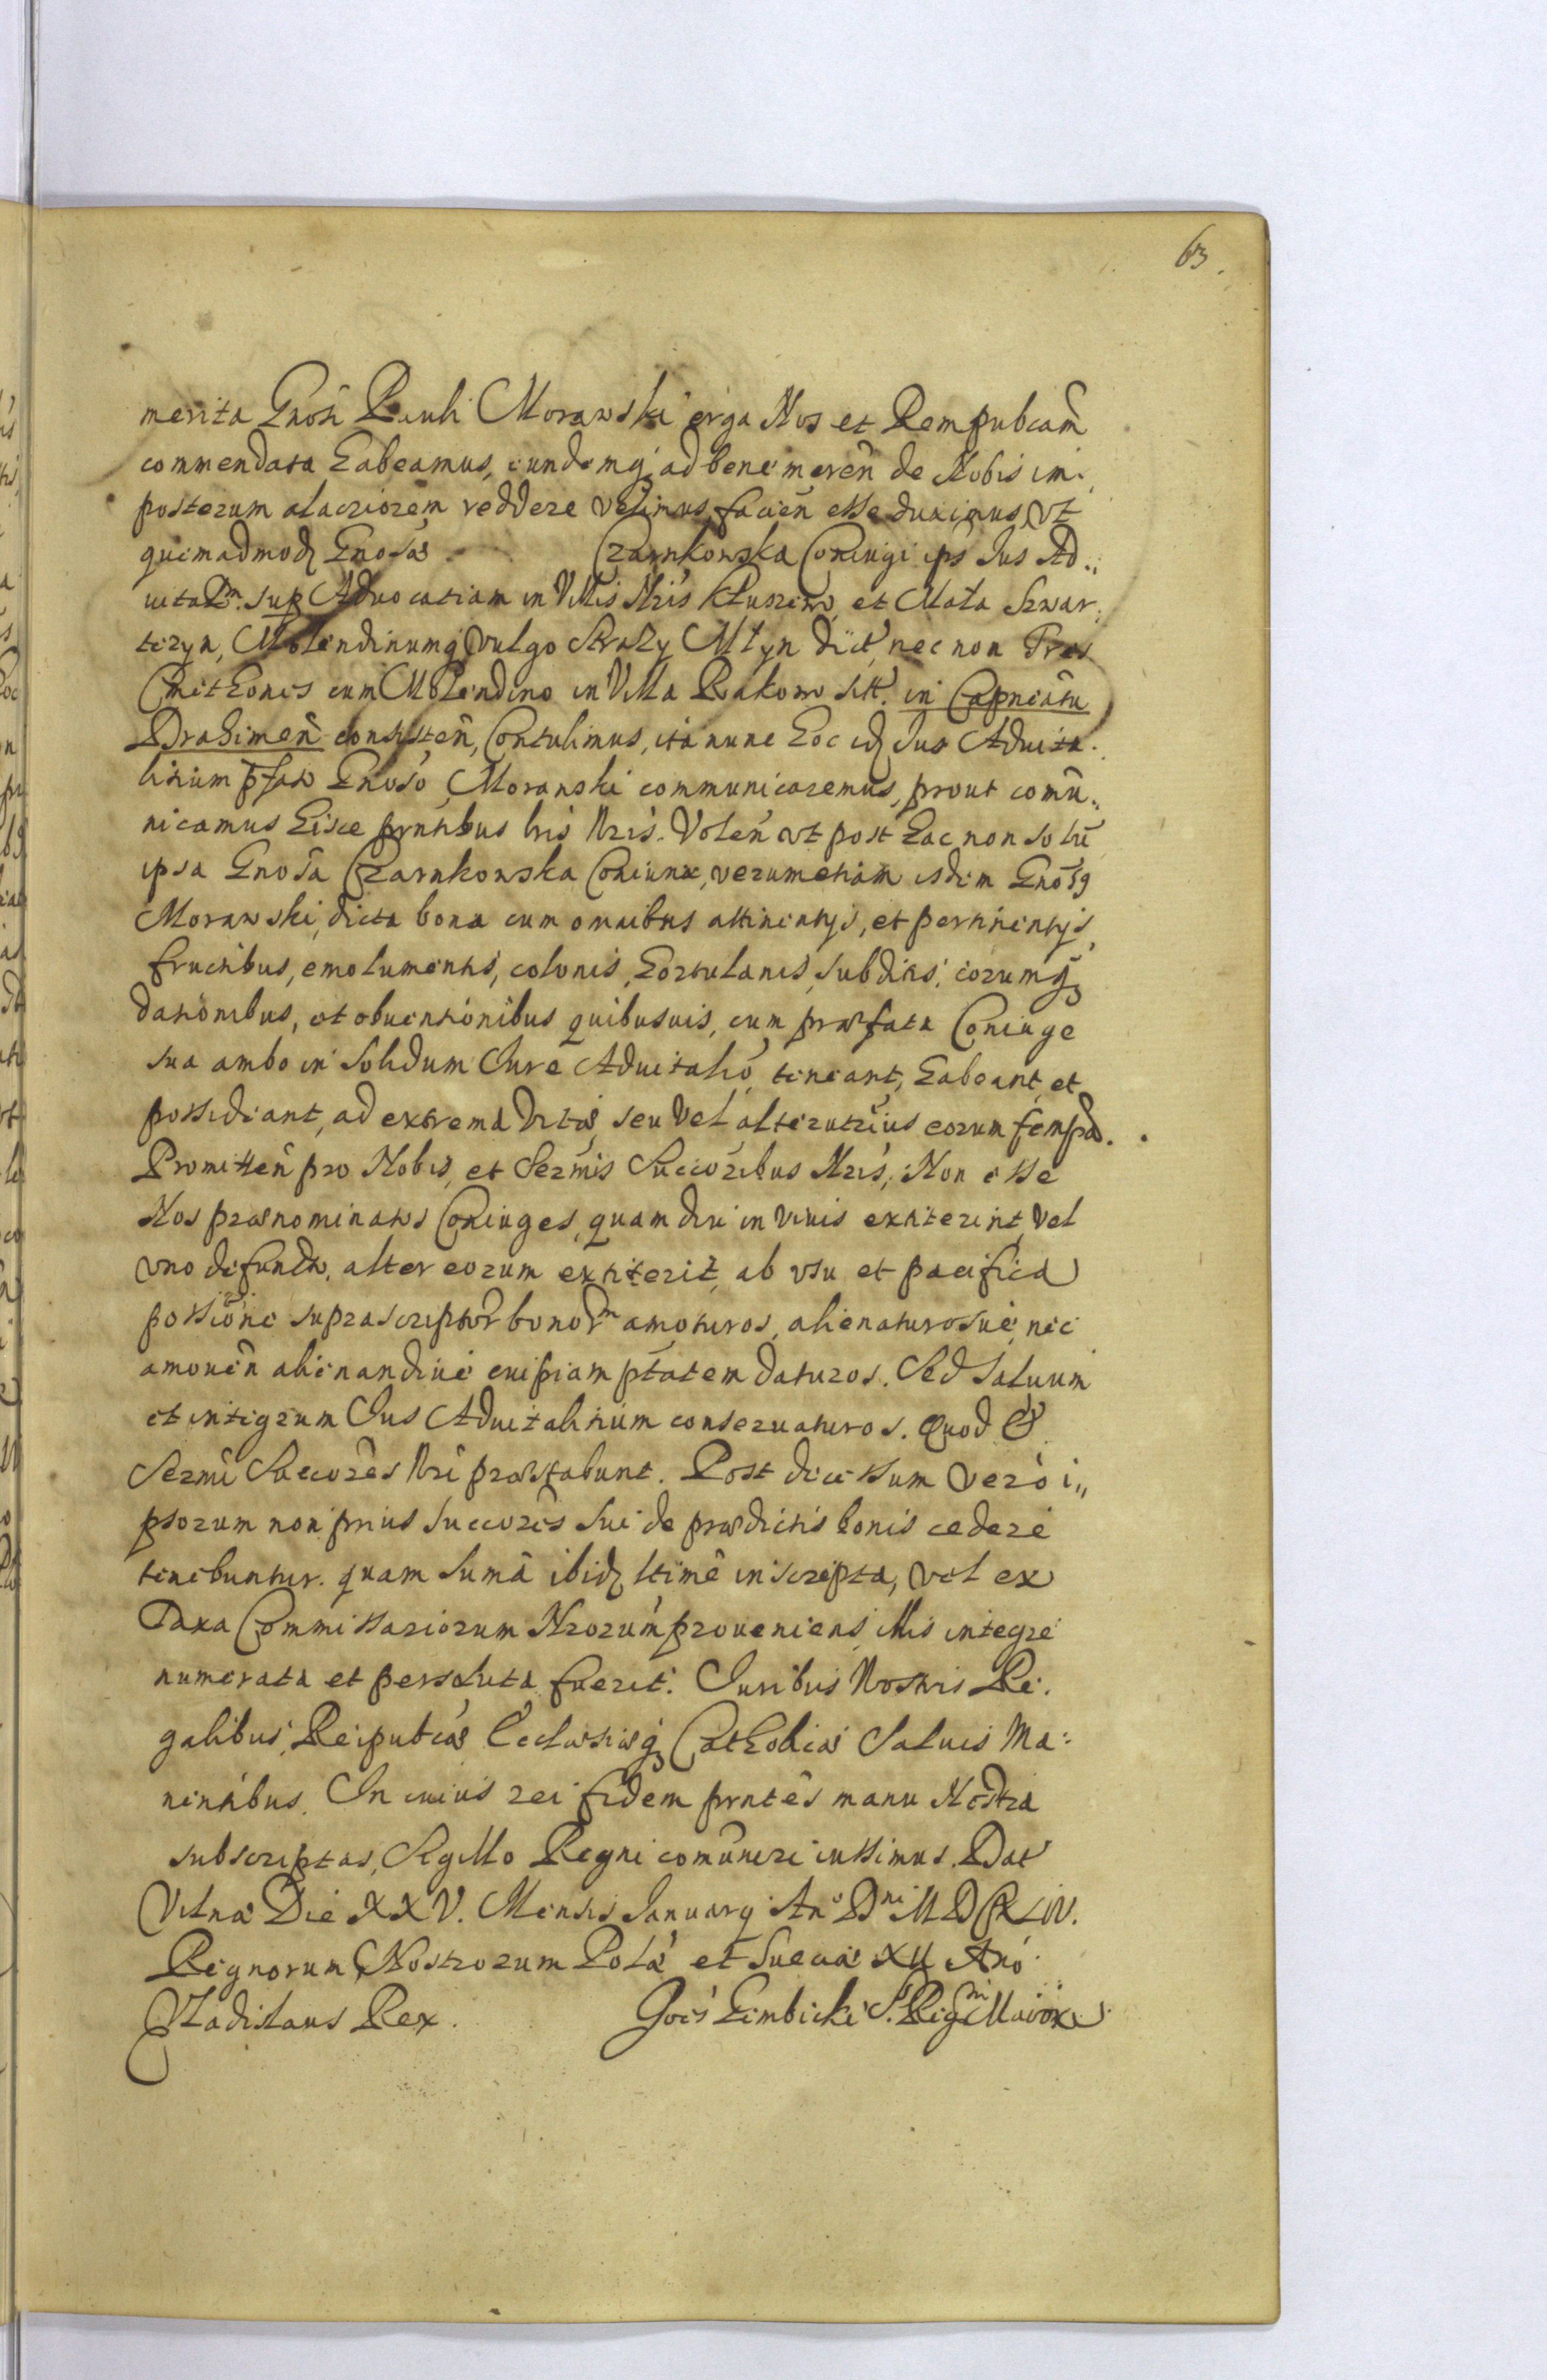 63.
merita Gnosi Pauli Morawski erga Nos et Rempubcam̃
commendata habeamus, eundemq; ad bene meren̄ de Nobis im.
posterum alacriorem reddere velimus, facien̄ esse duximus, vt
quemadmod; Gnosæ Czarnkowska Coniugi ips Jus Ad„
uitalm̃ sup Aduocatiam in Villis Nr̃is Kłuszewo, et Mała Szwar„
tczyn, Molendinumq; vulgo Straży Młyn dict, nec non Tres
Cmethones cum Molendino in Villa Rakowo sitt. in Capneātu
Drahimen̄ consisten̄, Contulimus, ita nunc hoc id; Jus Aduita„
litium pfato Gnoso Morawski communicaremus, prout comū„
nicamus hisce pñtibus lris Nr̃is. Volen̄ vt post hac non solū
ipsa Gnosa Czarnkowska Coniunx, verumetiam isdem Gnos9
Morawski, dicta bona cum omnibus attinentijs, et pertinentijs
fructibus, emolumentis, colonis, hortulanis, subditis, eorumq;
dationibus, et obuentionibus quibusuis, cum præfata Coniuge
sua ambo in solidum Jure Aduitalio, teneant, habeant, et
possideant, ad extrema vitæ, seu vel alterutrius eorum tempa.
Promitten̄ pro Nobis, et Sermis Succoribus Nr̃is, Non esse
Nos prænominatos Coniuges, quamdiu in viuis extiterint, vel
vno defuncto, alter eorum extiterit, ab vsu et pacifica
possione suprascriptor̃ bonorm̃ amoturos, alienaturosue, nec
amouen̄ alienandiue cuipiam ptatem daturos. Sed saluum
et integrum Jus Aduitalitium conseruaturos. Quod &
Sermi Succores Nr̃i præstabunt. Post decessum verò i„
psorum non prius succores sui de prædictis bonis cedere
tenebuntur. quam suma ibid; ltime inscripta, vel ex
Taxa Commissariorum Nrorum proueniens illis integre
numerata et persoluta fuerit. Juribus Nostris Re„
galibus, Reipubcæ Ecclesiæq; Catholicæ Saluis Ma„
nentibus. In cuius rei fidem pñtes manu Nostra
subscriptas, Sigillo Regni comunire iussimus. Dat
Vilnæ Die XXV. Mensis January An̄o Dni MDCXLIV.
Regnorum Nostrorum Polæ et Sueciæ XII Ano
Vladislaus Rex. Joes Gembicki S. Regni Maior